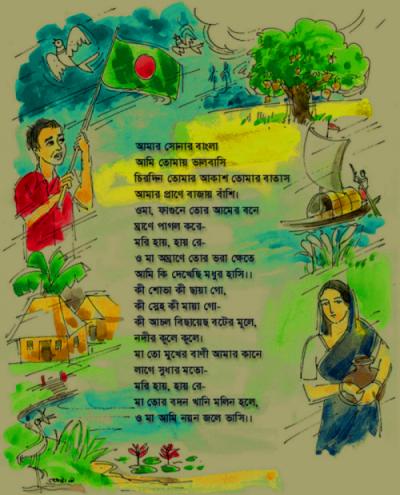 আমার সোনার বাংলা
আমি তোমায় ভালবাসি
চিরদিন তোমার আকাশ তোমার বাতাস
আমার প্রাণে বাজায় বাঁশি।
ওমা, ফাগুনে তোর আমের বনে
ঘ্রাণে পাগল করে-
মরি হায়, হায় রে-
ও মা অঘ্রাণে তোর ভরা ক্ষেতে
আমি কি দেখেছি মধুর হাসি।।
কী শোভা কী ছায়া গো,
কী স্নেহ কী মায়া গো-
কী আচল বিছায়েছ বটের মূলে,
নদীর কূলে কূলে।
মা তো মুখের বাণী আমার কানে
লাগে সুধার মতো-
মরি হায়, হায় রে-
মা তোর বদন খানি মলিন হলে,
ও মা আমি নয়ন জলে ভাসি।।